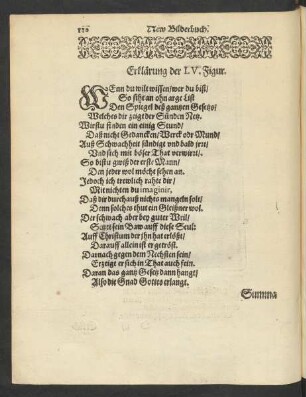 110 New Bilderbuch.
Erklärung der LV. Figur.
WEnn du wilt wissen/wer du bist/
So sihe an ohn arge List
Den Spiegel deß gantzen Gesetz/
Welches dir zeigt der Sünden Netz.
Wirstu finden ein einig Stund/
Daß nicht Gedancken/Werck odr Mund/
Auß Schwachheit sündigt vnd bald irrt/
Vnd sich mit böser That verwirrt/
So bistu gwiß der erste Mann/
Den jeder wol möcht sehen an.
Jedoch ich trewlich rahte dir/
Mit nichten du imaginir,
Daß dir durchauß nichts mangeln solt/
Denn solches thut ein Gleißner wol.
Der schwach aber bey guter Weil/
Setzt sein Baw auff diese Seul:
Auff Christum der jhn hat erlößt/
Darauff allein ist er getröst.
Darnach gegen dem Nechsten sein/
Erzeigt er sich in That auch fein.
Daran das gantz Gesetz dann hangt/
Also die Gnad Gottes erlangt.
Summa